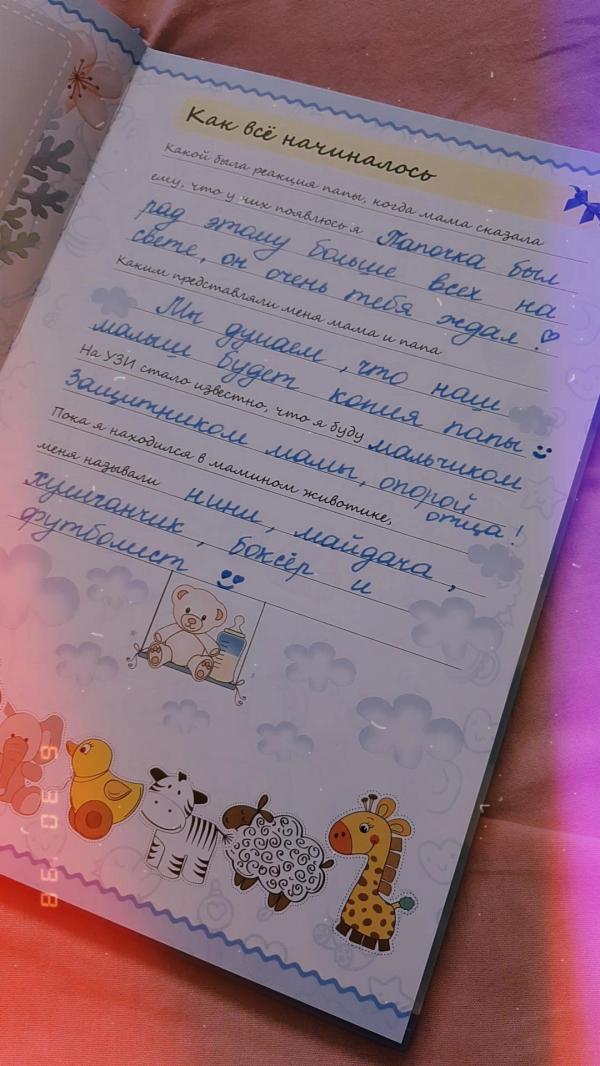 Как всё начиналось
Какой была реакция папы, когда мама сказала
ему, что у них появлюсь я Папочка был
рад этому больше всех на
свете, он очень тебя ждал!
Каким представляли меня мама и папа
Мы думаем, что наш
малыш будет копия папы
На УЗИ стало известно, что я буду мальчиком
Защитником мамы, опорой
отца!
Пока я находился в мамином животике,
меня называли нини, майдача,
хулиганчик, боксёр и
футболист
6 30 '98